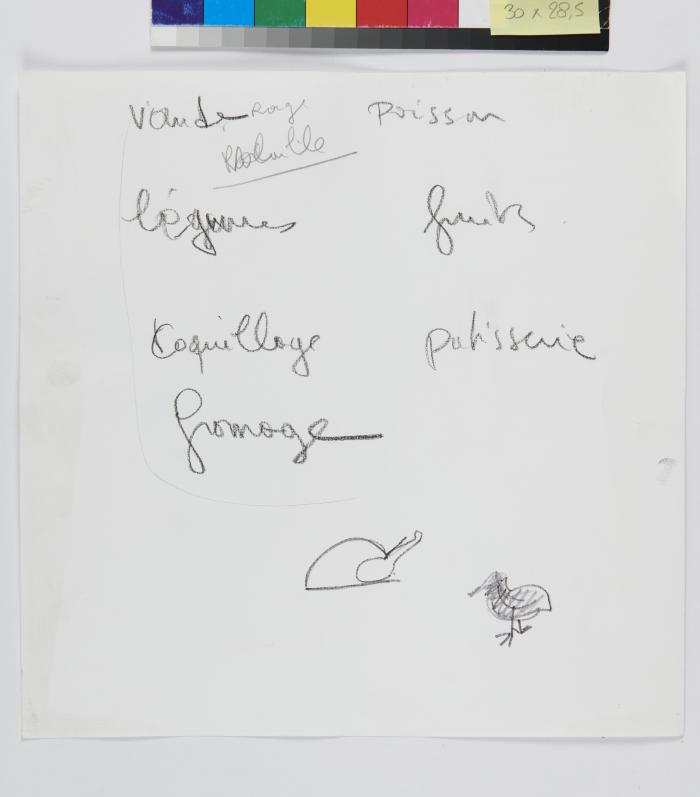 30 x 28,5
Viande rouge Poisson
légumes fruits
Coquillage patisserie
fromage